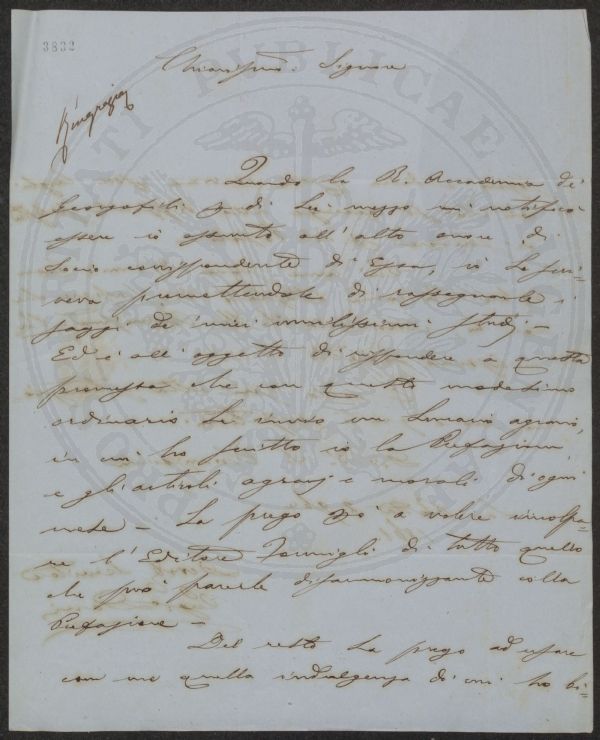 3832
Chiarissimo Signore
Ringrazia
Quando la R. Accademia dei
Georgofili p. di Lei mezzo mi notificò
essere io assunto all'alto onore di
Socio corrispondente d'Essa, io Le scri=
veva promettendole di rassegnarle i
saggi de' miei umilissimi studj –
Ed è all'oggetto di rispondere a questa
promessa che con questo medesimo
ordinario Le invio un Lunario agrario,
in cui ho scritto io la Prefazione,
e gli articoli agrarj e morali di ogni
mese – La prego poi a volere incolpa=
re l'Editore di tutto quello
che può parerle disarmonizzante colla
Prefazione –
Del resto La prego ad usare
con me quella indulgenza di cui ho bi=
PUBLICAE